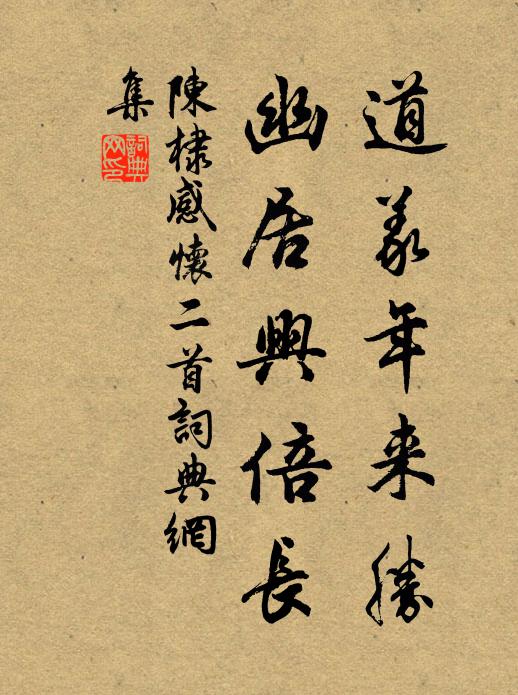 道義年来勝
幽居興倍長
陳棣感懷二首詞典網
集
詞典
网印